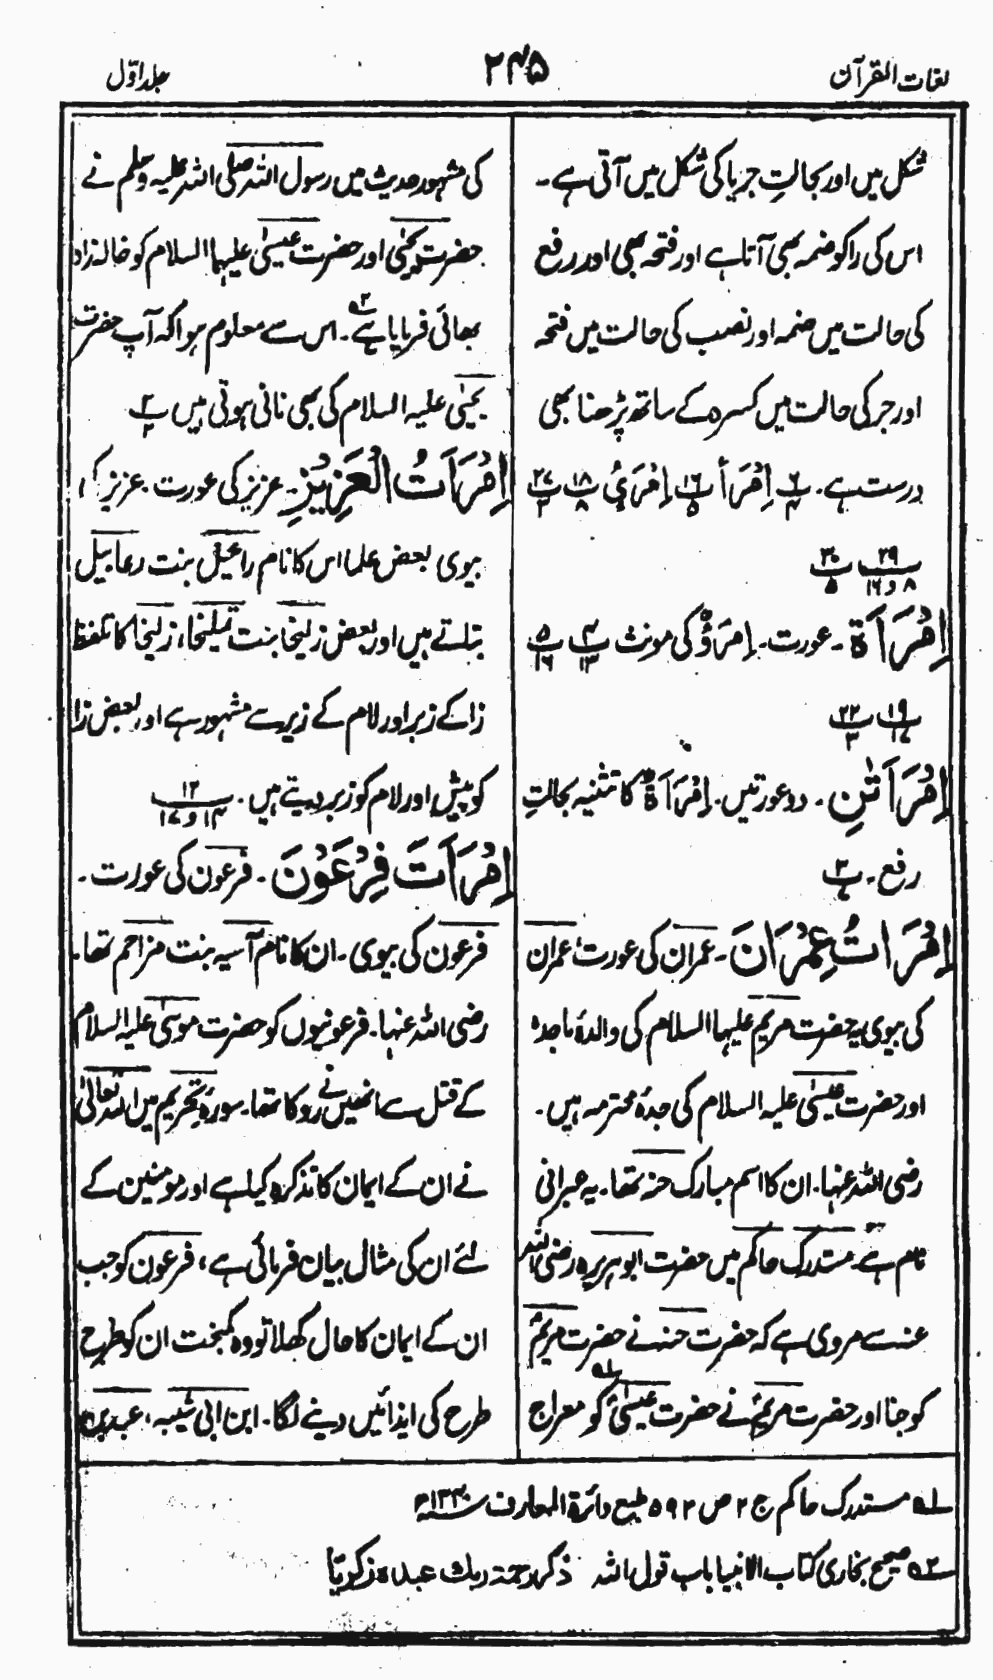 لغات القرآن
۲۴۵
جلد اوّل
شکل میں اور بحالتِ جر یا کی شکل میں آتی ہے۔
اس کی را کو ضمہ بھی آتا ہے اور فتحہ بھی اور رفع
کی حالت میں ضمہ اور نصب کی حالت میں فتحہ
اور جر کی حالت میں کسرہ کے ساتھ پڑھنا بھی
درست ہے۔ اِمْرَأَ اِمْرَئٍ
اِمْرَأَة۔ عورت۔ اِمْرَؤٌ کی مونث
اِمْرَأَتٰنِ۔ دو عورتیں۔ اِمْرَأَةٌ کا تثنیہ بحالتِ
رفع۔
اِمْرَاتُ عِمْرَانَ۔ عمران کی عورت، عمران
کی بیوی یہ حضرت مریم علیہا السلام کی والدۂ ماجدہ
اور حضرت عیسیٰ علیہ السلام کی جدۂ محترمہ ہیں۔
رضی اللہ عنہا۔ ان کا اسم مبارک حنہ تھا۔ یہ عبرانی
نام ہے۔ مستدرک حاکم میں حضرت ابوہریرہ رضی اللہ
عنہ سے مروی ہے کہ حضرت حنہ نے حضرت مریمؑ
کو جنا اور حضرت مریمؑ نے حضرت عیسیٰؑ کو ۱؎ معراج
کی مشہور حدیث میں رسول اللہ صلی اللہ علیہ وسلم نے
حضرت یحییٰ اور حضرت عیسیٰ علیہما السلام کو خالہ زاد
بھائی فرمایا ہے ۲؎۔ اس سے معلوم ہوا کہ آپ حضرت
یحییٰ علیہ السلام کی بھی نانی ہوتی ہیں
اِمْرَأَتُ الْعَزِیْزِ۔ عزیز کی عورت۔ عزیز کی
بیوی بعض علما اس کا نام راعیل بنت رعابیل
بتلاتے ہیں اور بعض زلیخا بنت تملیخا، زلیخا کا تلفظ
زا کے زبر اور لام کے زیر سے مشہور ہے اور بعض زا
کو پیش اور لام کو زبر دیتے ہیں۔ ۱۲
اِمْرَأَتَ فِرْعَوْنَ۔ فرعون کی عورت۔
فرعون کی بیوی۔ ان کا نام آسیہ بنت مزاحم تھا۔
رضی اللہ عنہا۔ فرعونیوں کو حضرت موسیٰ علیہ السلام
کے قتل سے انھیں نے روکا تھا۔ سورۂ تحریم میں اللہ تعالیٰ
نے ان کے ایمان کا تذکرہ کیا ہے اور مومنین کے
لئے ان کی مثال بیان فرمائی ہے، فرعون کو جب
ان کے ایمان کا حال کھلا تو وہ کمبخت ان کو طرح
طرح کی ایذائیں دینے لگا۔ ابن ابی شیبہ، عبد بن
۱؎ مستدرک حاکم ج ۲ ص ۵۹۲ طبع دائرۃ المعارف ۱۳۴۰ھ
۲؎ صحیح بخاری کتاب الانبیا باب قول اللہ ذکر رحمۃ ربک عبدہ زکریّا